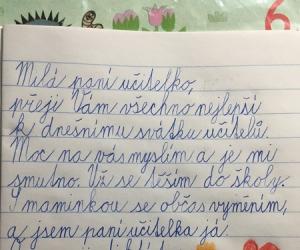 6
Milá paní učitelko,
přeji Vám všechno nejlepší
k dnešnímu svátku učitelů.
Moc na vás myslím a je mi
smutno. Už se těším do školy.
S maminkou se občas vyměním,
a jsem paní učitelka já.